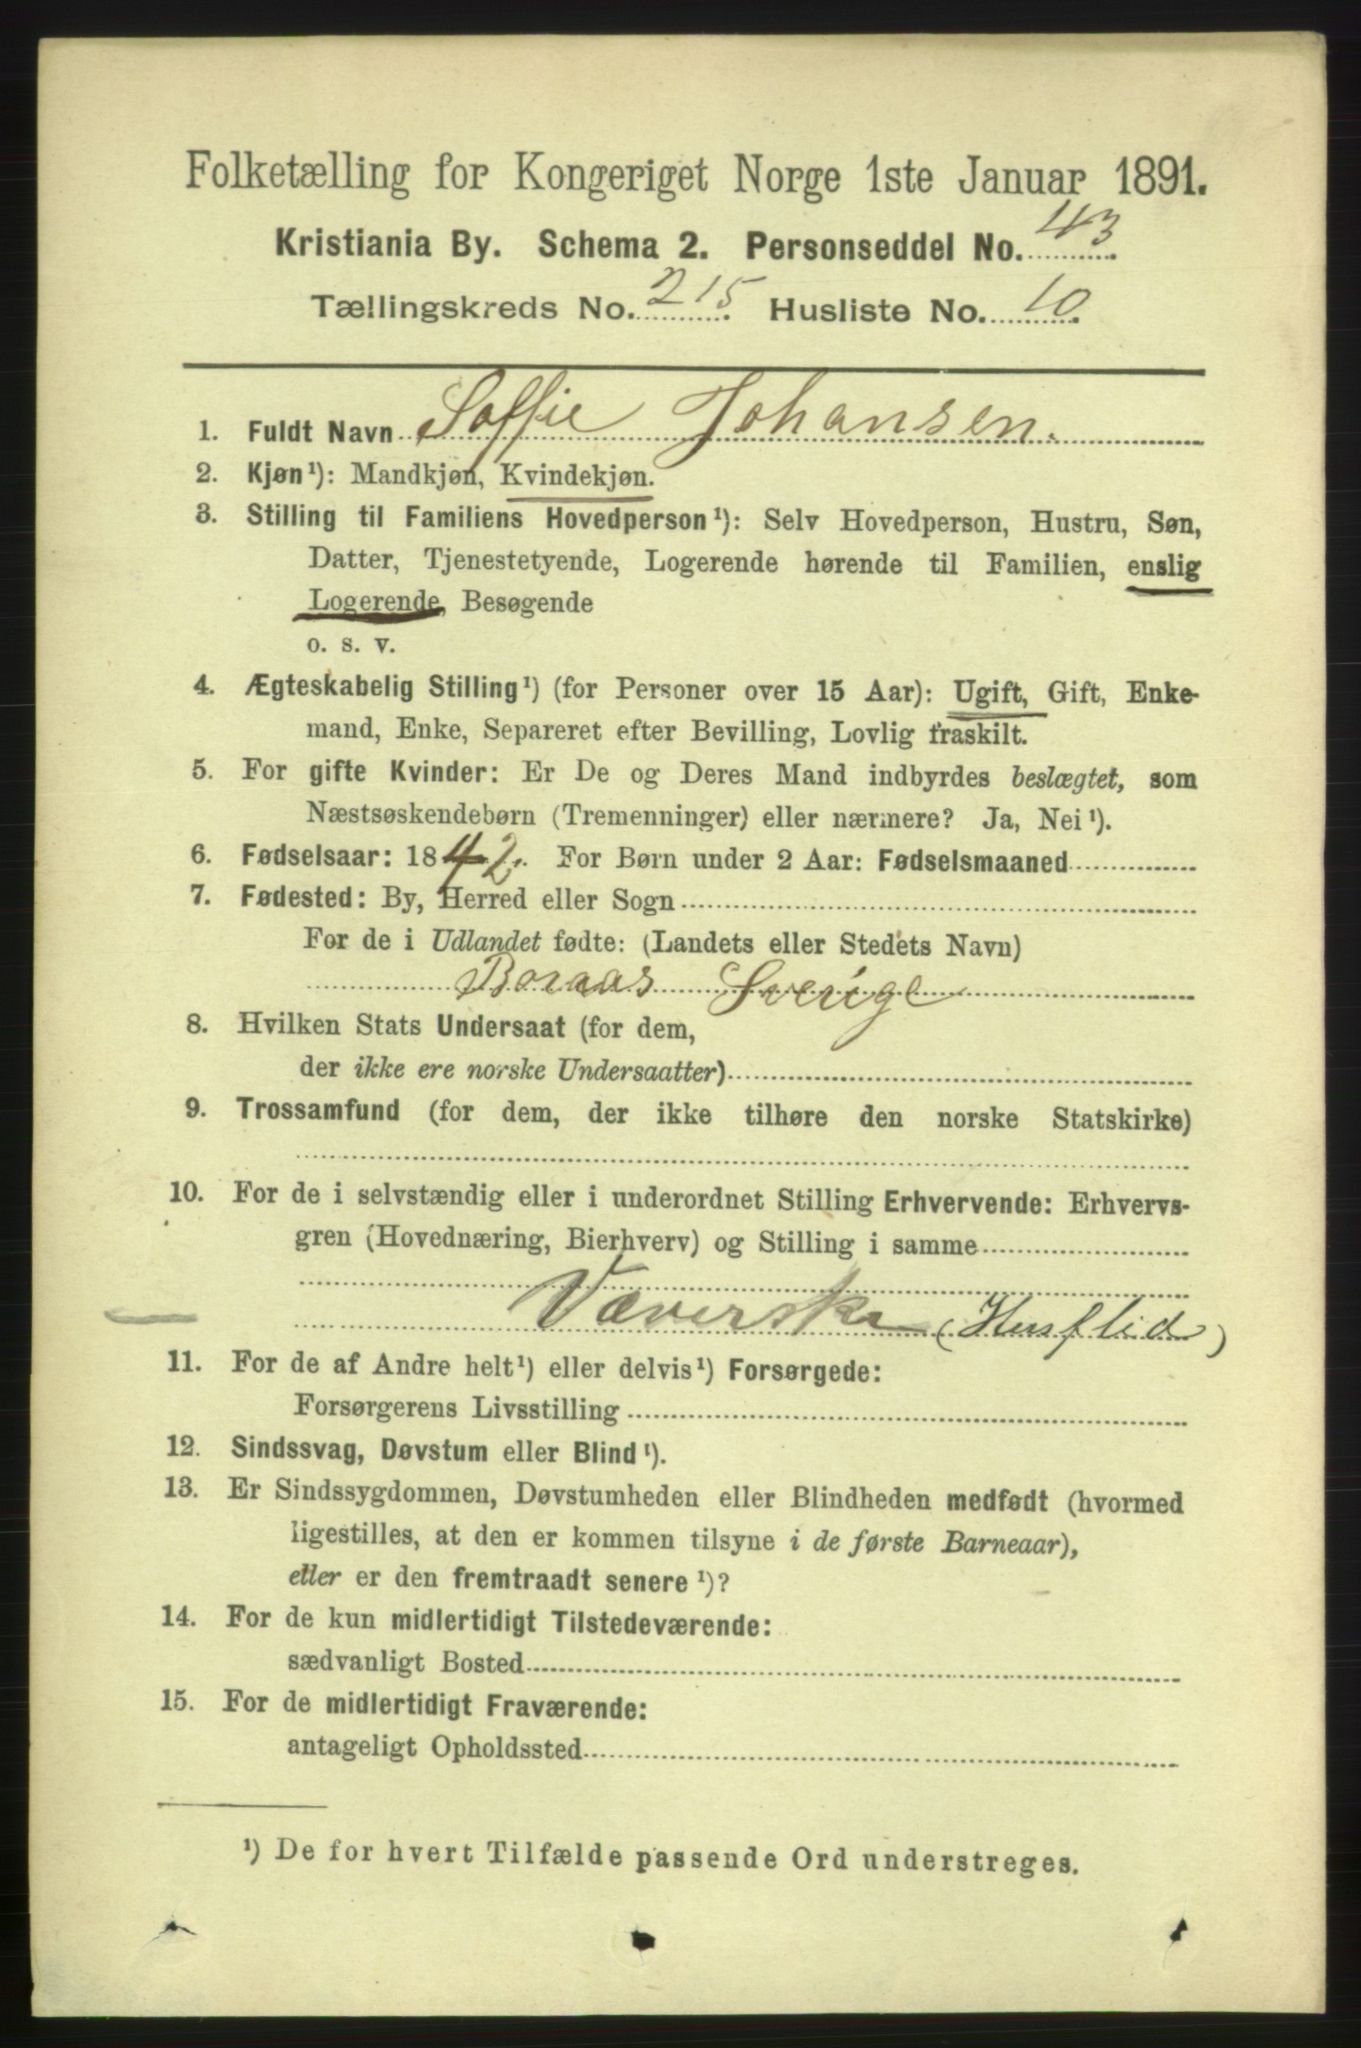 Folketælling for Kongeriget Norge 1ste Januar 1891.
Kristiania By. Schema 2. Personseddel No. 43
Tællingskreds No. 215. Husliste No. 10.
1. Fuldt Navn Soffie Johansen.
2. Kjøn¹): Mandkjøn, Kvindekjøn.
3. Stilling til Familiens Hovedperson¹): Selv Hovedperson, Hustru, Søn,
Datter, Tjenestetyende, Logerende hørende til Familien, enslig
Logerende, Besøgende
o. s. v.
4. Ægteskabelig Stilling¹) (for Personer over 15 Aar): Ugift, Gift, Enke-
mand, Enke, Separeret efter Bevilling, Lovlig fraskilt.
5. For gifte Kvinder: Er De og Deres Mand indbyrdes beslægtet, som
Næstsøskendebørn (Tremenninger) eller nærmere? Ja, Nei¹).
6. Fødselsaar: 1842. For Børn under 2 Aar: Fødselsmaaned
7. Fødested: By, Herred eller Sogn
For de i Udlandet fødte: (Landets eller Stedets Navn)
Boraas Sverige
8. Hvilken Stats Undersaat (for dem,
der ikke ere norske Undersaatter)
9. Trossamfund (for dem, der ikke tilhøre den norske Statskirke)
10. For de i selvstændig eller i underordnet Stilling Erhvervende: Erhvervs-
gren (Hovednæring, Bierhverv) og Stilling i samme
Væverske (Husflid)
11. For de af Andre helt¹) eller delvis¹) Forsørgede:
Forsørgerens Livsstilling
12. Sindssvag, Døvstum eller Blind¹).
13. Er Sindssygdommen, Døvstumheden eller Blindheden medfødt (hvormed
ligestilles, at den er kommen tilsyne i de første Barneaar),
eller er den fremtraadt senere¹)?
14. For de kun midlertidigt Tilstedeværende:
sædvanligt Bosted
15. For de midlertidigt Fraværende:
antageligt Opholdssted
¹) De for hvert Tilfælde passende Ord understreges.